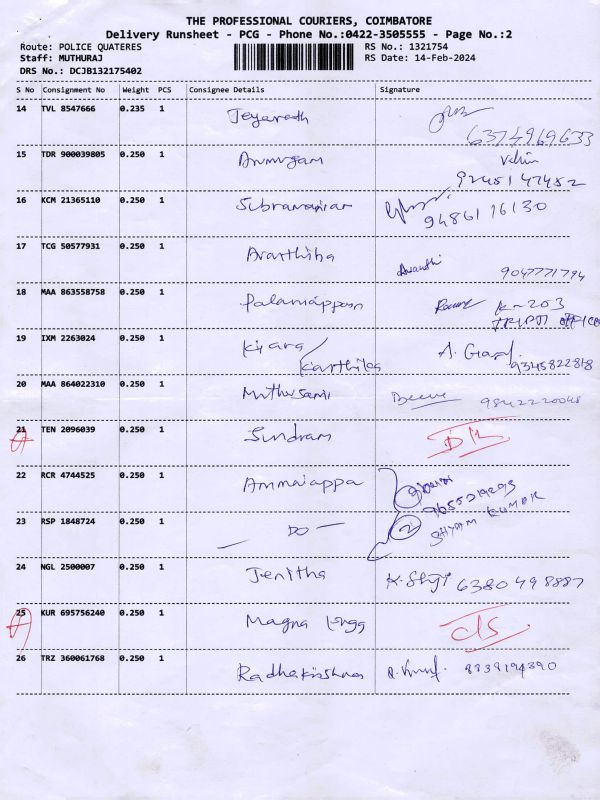 THE PROFESSIONAL COURIERS, COIMBATORE
Delivery Runsheet - PCG - Phone No.:0422-3505555 - Page No.:2
Route: POLICE QUATERES RS No.: 1321754
Staff: MUTHURAJ RS Date: 14-Feb-2024
DRS No.: DCJB132175402
S No Consignment No Weight PCS Consignee Details Signature
14 TVL 8547666 0.235 1 Jeyaradh
6374969633
15 TDR 900039805 0.250 1 Arumugam
9245147452
16 KCM 21365110 0.250 1 Subramanian
9486116130
17 TCG 50577931 0.250 1 Avarthiha
9047771794
18 MAA 863558758 0.250 1 Palaniappan K-203
19 IXM 2263024 0.250 1 Kiyara/ A.
Karthika 9345822818
20 MAA 864022310 0.250 1 Muthusami 9842220048
21 TEN 2096039 0.250 1 Sundram DL
22 RCR 4744525 0.250 1 Ammaiappa
23 RSP 1848724 0.250 1 — DO — 2 SHYAM KUMAR
24 NGL 2500007 0.250 1 Jenitha K. 6380498887
25 KUR 695756240 0.250 1 Magna
26 TRZ 360061768 0.250 1 Radhakrishnan 8838194390